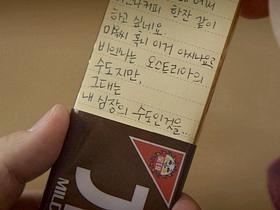 커피 한잔 같이
하고 싶네요
혹시 이거 아시나요?
비엔나는 오스트리아의
수도지만,
그대는
내 심장의 수도인것을..
MILD